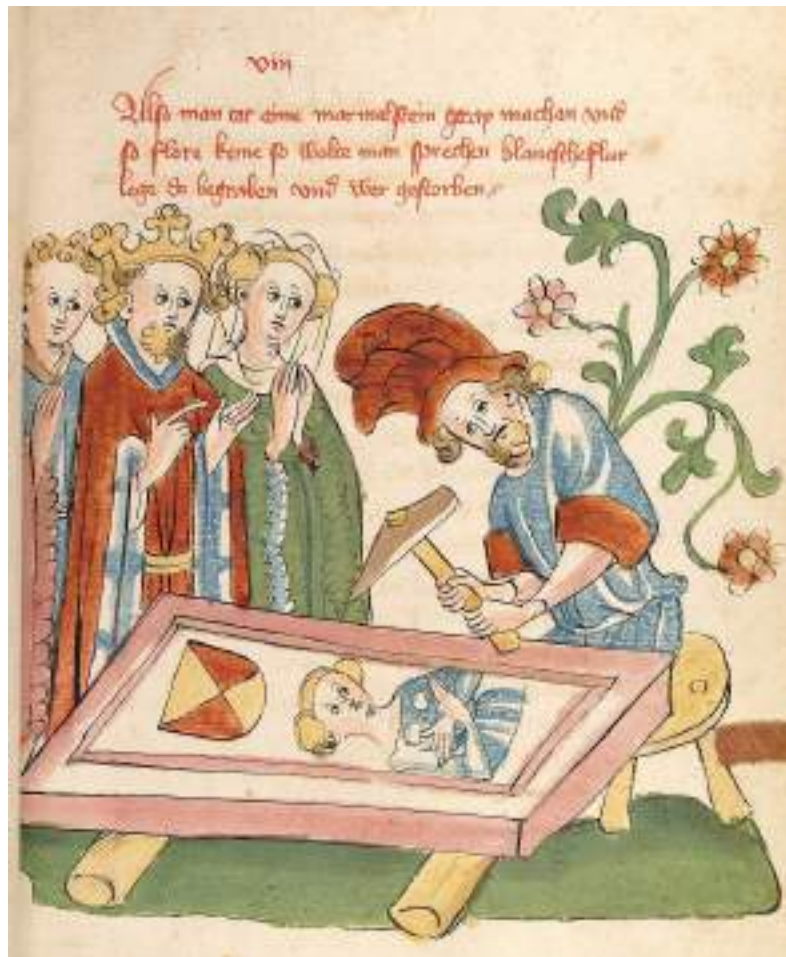 viij
Also man ein marmelstein grap machan vnd
so flore keme so wolte man sprechen blanscheflur
lege do begraben vnd wer gestorben